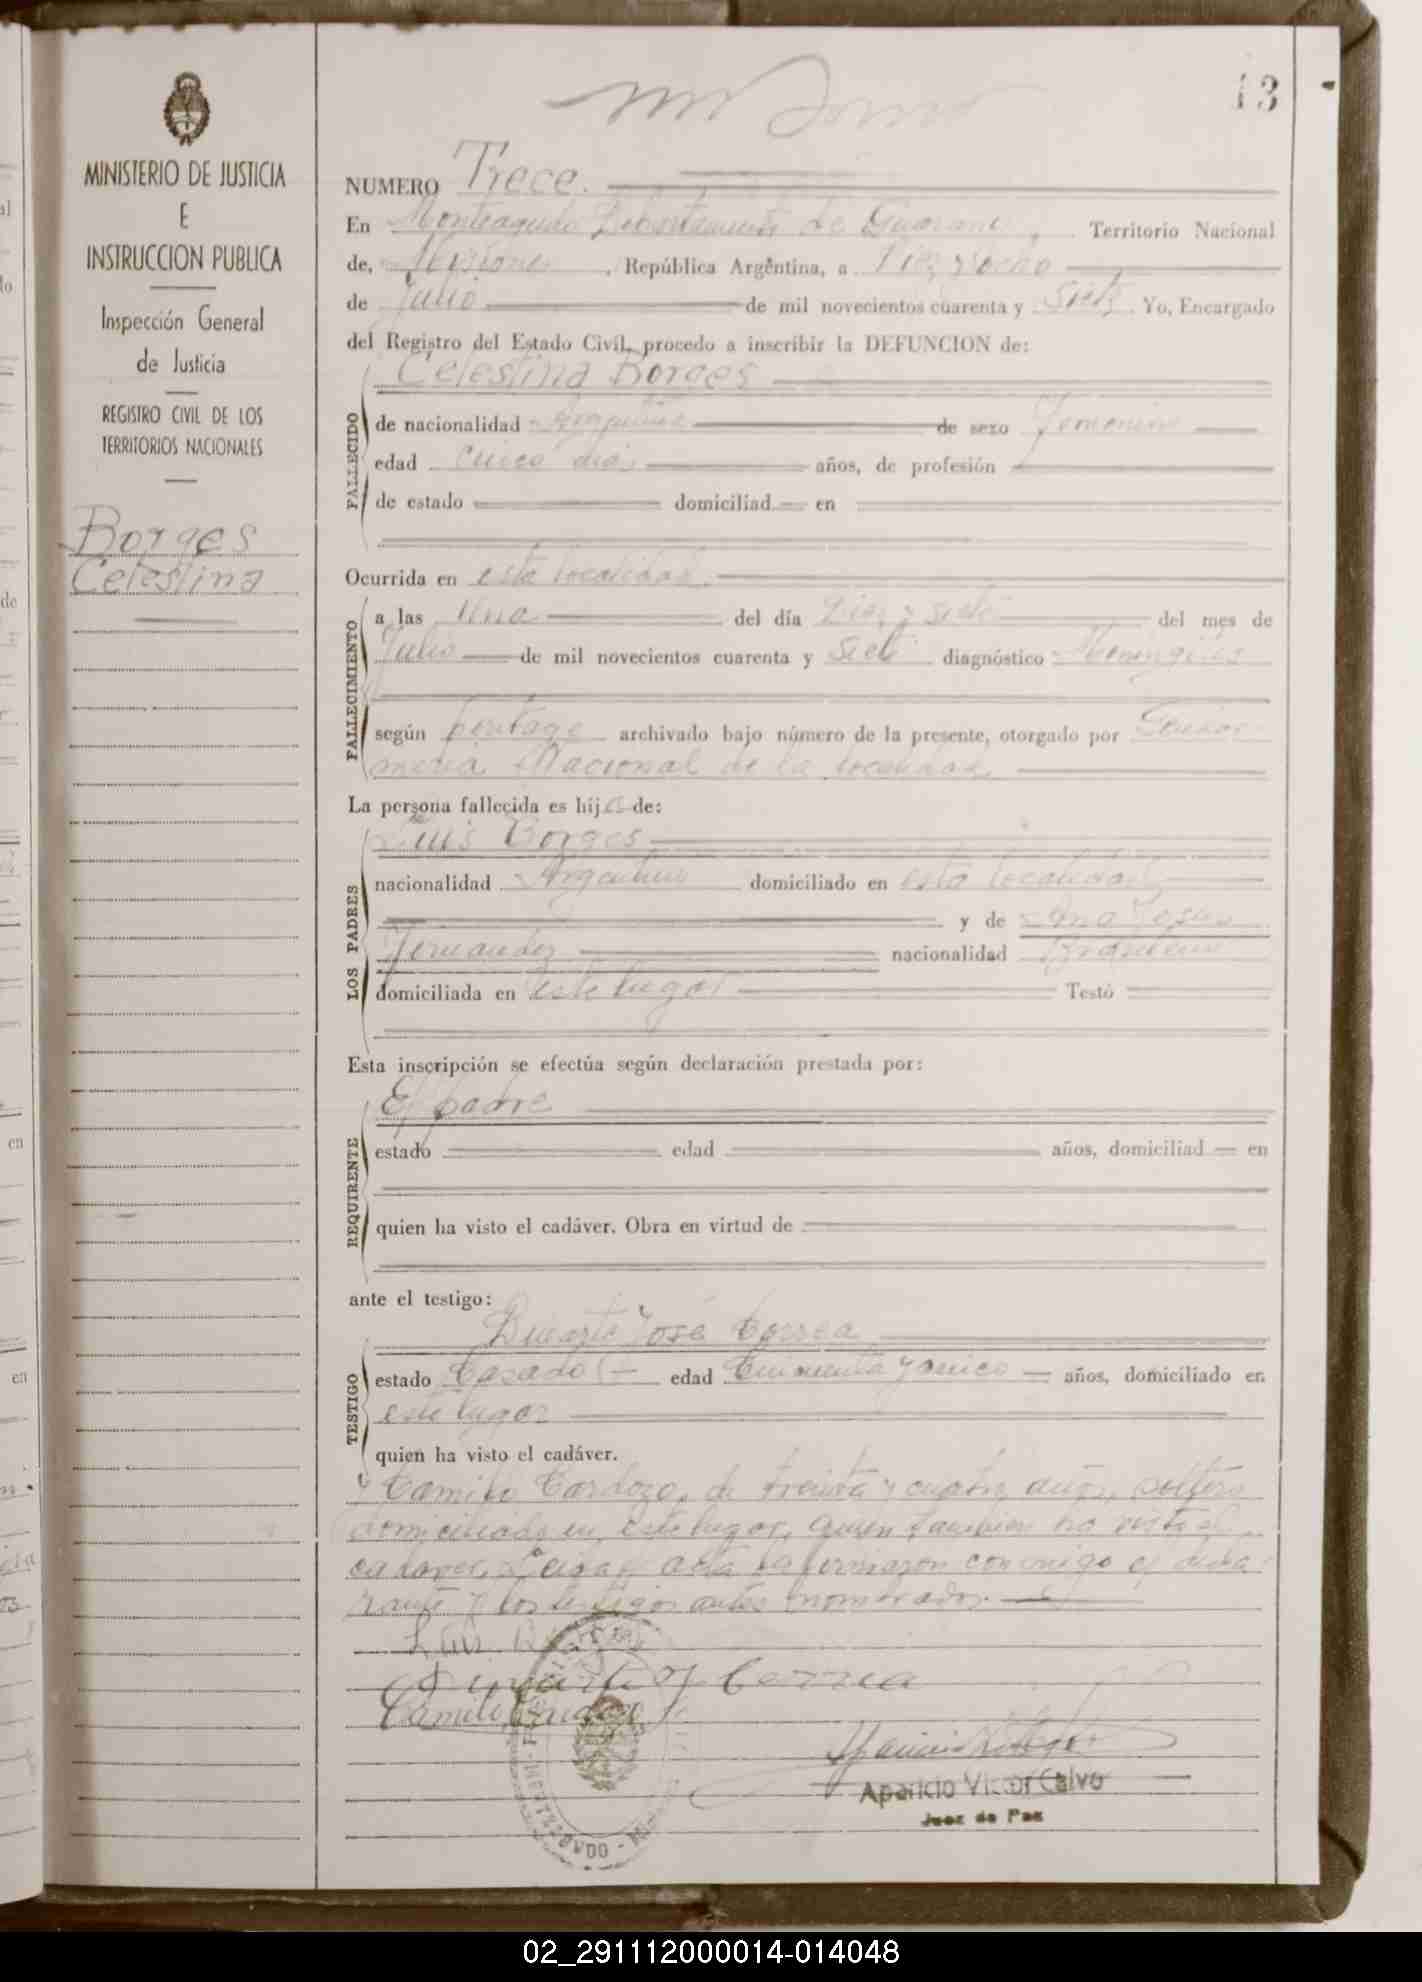 13
MINISTERIO DE JUSTICIA
E
INSTRUCCION PUBLICA
Inspección General
de Justicia
REGISTRO CIVIL DE LOS
TERRITORIOS NACIONALES
Borges
Celestina
NUMERO Trece.
En Monteagudo Departamento de Guarani, Territorio Nacional
de, Misiones, República Argentina, a Diez y ocho
de Julio de mil novecientos cuarenta y siete Yo, Encargado
del Registro del Estado Civil, procedo a inscribir la DEFUNCION de:
Celestina Borges
FALLECIDO
de nacionalidad Argentina de sexo Femenino
edad Cinco dias años, de profesión
de estado domiciliad en
Ocurrida en esta localidad.
FALLECIMIENTO
a las Una del día Diez y siete del mes de
Julio de mil novecientos cuarenta y siete diagnóstico Meningitis
según peritage archivado bajo número de la presente, otorgado por Gendar-
meria Nacional de la localidad
La persona fallecida es hija de:
Luis Borges
LOS PADRES
nacionalidad Argentino domiciliado en esta localidad
y de Ana
Fernandez nacionalidad Brasilera
domiciliada en este lugar Testó
Esta inscripción se efectúa según declaración prestada por:
El padre
REQUIRENTE
estado edad años, domiciliad en
quien ha visto el cadáver. Obra en virtud de
ante el testigo:
Duarte José Correa
TESTIGO
estado Casado edad Cincuenta y cinco años, domiciliado en
este lugar
quien ha visto el cadáver.
y Camilo Cardozo, de treinta y cuatro años, soltero
domiciliado en este lugar, quien tambien ha visto el
cadaver. Leida el acta la firmaron conmigo el decla-
rante y los testigos antes nombrados.
Luis
Duarte J Correa
Camilo
Aparicio Victor Calvo
Juez de Paz
02_291112000014-014048